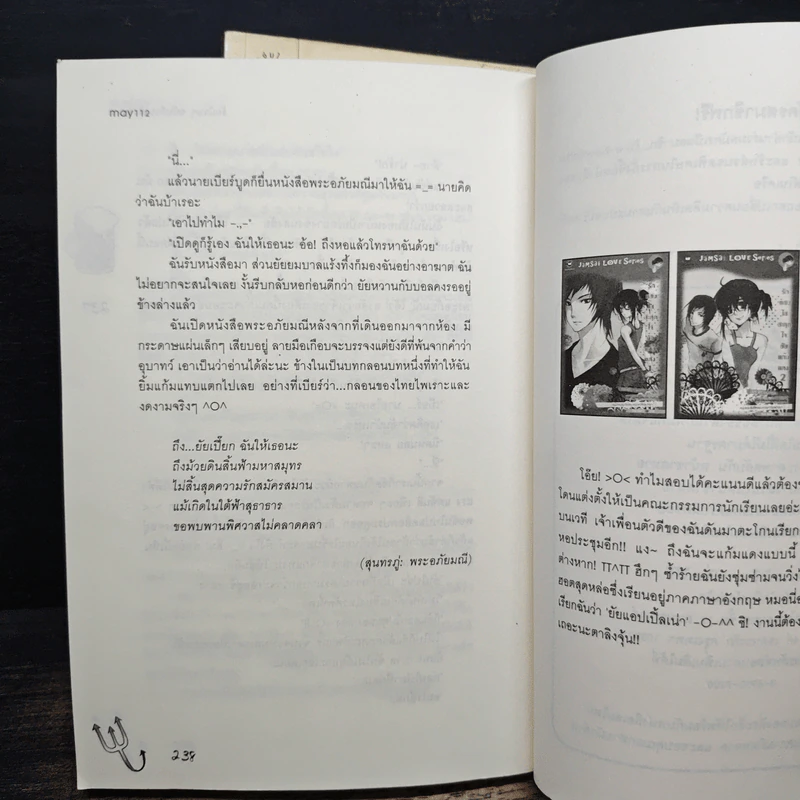 may112
"นี่..."
แล้วนายเบียร์บูดก็ยื่นหนังสือพระอภัยมณีมาให้ฉัน =_= นายคิด
ว่าฉันบ้าเรอะ
"เอาไปทำไม -.,-"
"เปิดดูก็รู้เอง ฉันให้เธอนะ อ้อ! ถึงหอแล้วโทรหาฉันด้วย"
ฉันรับหนังสือมา ส่วนยัยยมบาลแร้งทึ้งก็มองฉันอย่างอาฆาต ฉัน
ไม่อยากจะสนใจเลย งั้นรีบกลับหอก่อนดีกว่า ยัยหวานกับบอลคงรออยู่
ข้างล่างแล้ว
ฉันเปิดหนังสือพระอภัยมณีหลังจากที่เดินออกมาจากห้อง มี
กระดาษแผ่นเล็กๆ เสียบอยู่ ลายมือเกือบจะบรรจงแต่ยังดีที่พ้นจากคำว่า
อุบาทว์ เอาเป็นว่าอ่านได้ล่ะนะ ข้างในเป็นบทกลอนบทหนึ่งที่ทำให้ฉัน
ยิ้มแก้มแทบแตกไปเลย อย่างที่เบียร์ว่า...กลอนของไทยไพเราะและ
งดงามจริงๆ ^O^
ถึง...ยัยเปี๊ยก ฉันให้เธอนะ
ถึงม้วยดินสิ้นฟ้ามหาสมุทร
ไม่สิ้นสุดความรักสมัครสมาน
แม้เกิดในใต้ฟ้าสุธาธาร
ขอพบพานพิศวาสไม่คลาดคลา
(สุนทรภู่: พระอภัยมณี)
238
JAMSAI LOVE Series
JAMSAI LOVE Series
โอ๊ย! >O< ทำไมสอบได้คะแนนดีแล้วต้อง
โดนแต่งตั้งให้เป็นคณะกรรมการนักเรียนเลยอ่ะ
บนเวที เจ้าเพื่อนตัวดีของฉันดันมาตะโกนเรียก
หอประชุมอีก!! แง~ ถึงฉันจะแก้มแดงแบบนี้
ต่างหาก! TT^TT ฮึกๆ ซ้ำร้ายฉันยังซุ่มซ่ามจนวิ่ง
ฮอตสุดหล่อซึ่งเรียนอยู่ภาคภาษาอังกฤษ หมอนี่
เรียกฉันว่า 'ยัยแอปเปิ้ลเน่า' -O-^^ ชิ! งานนี้ต้อง
เถอะนะตาลิงจุ้น!!